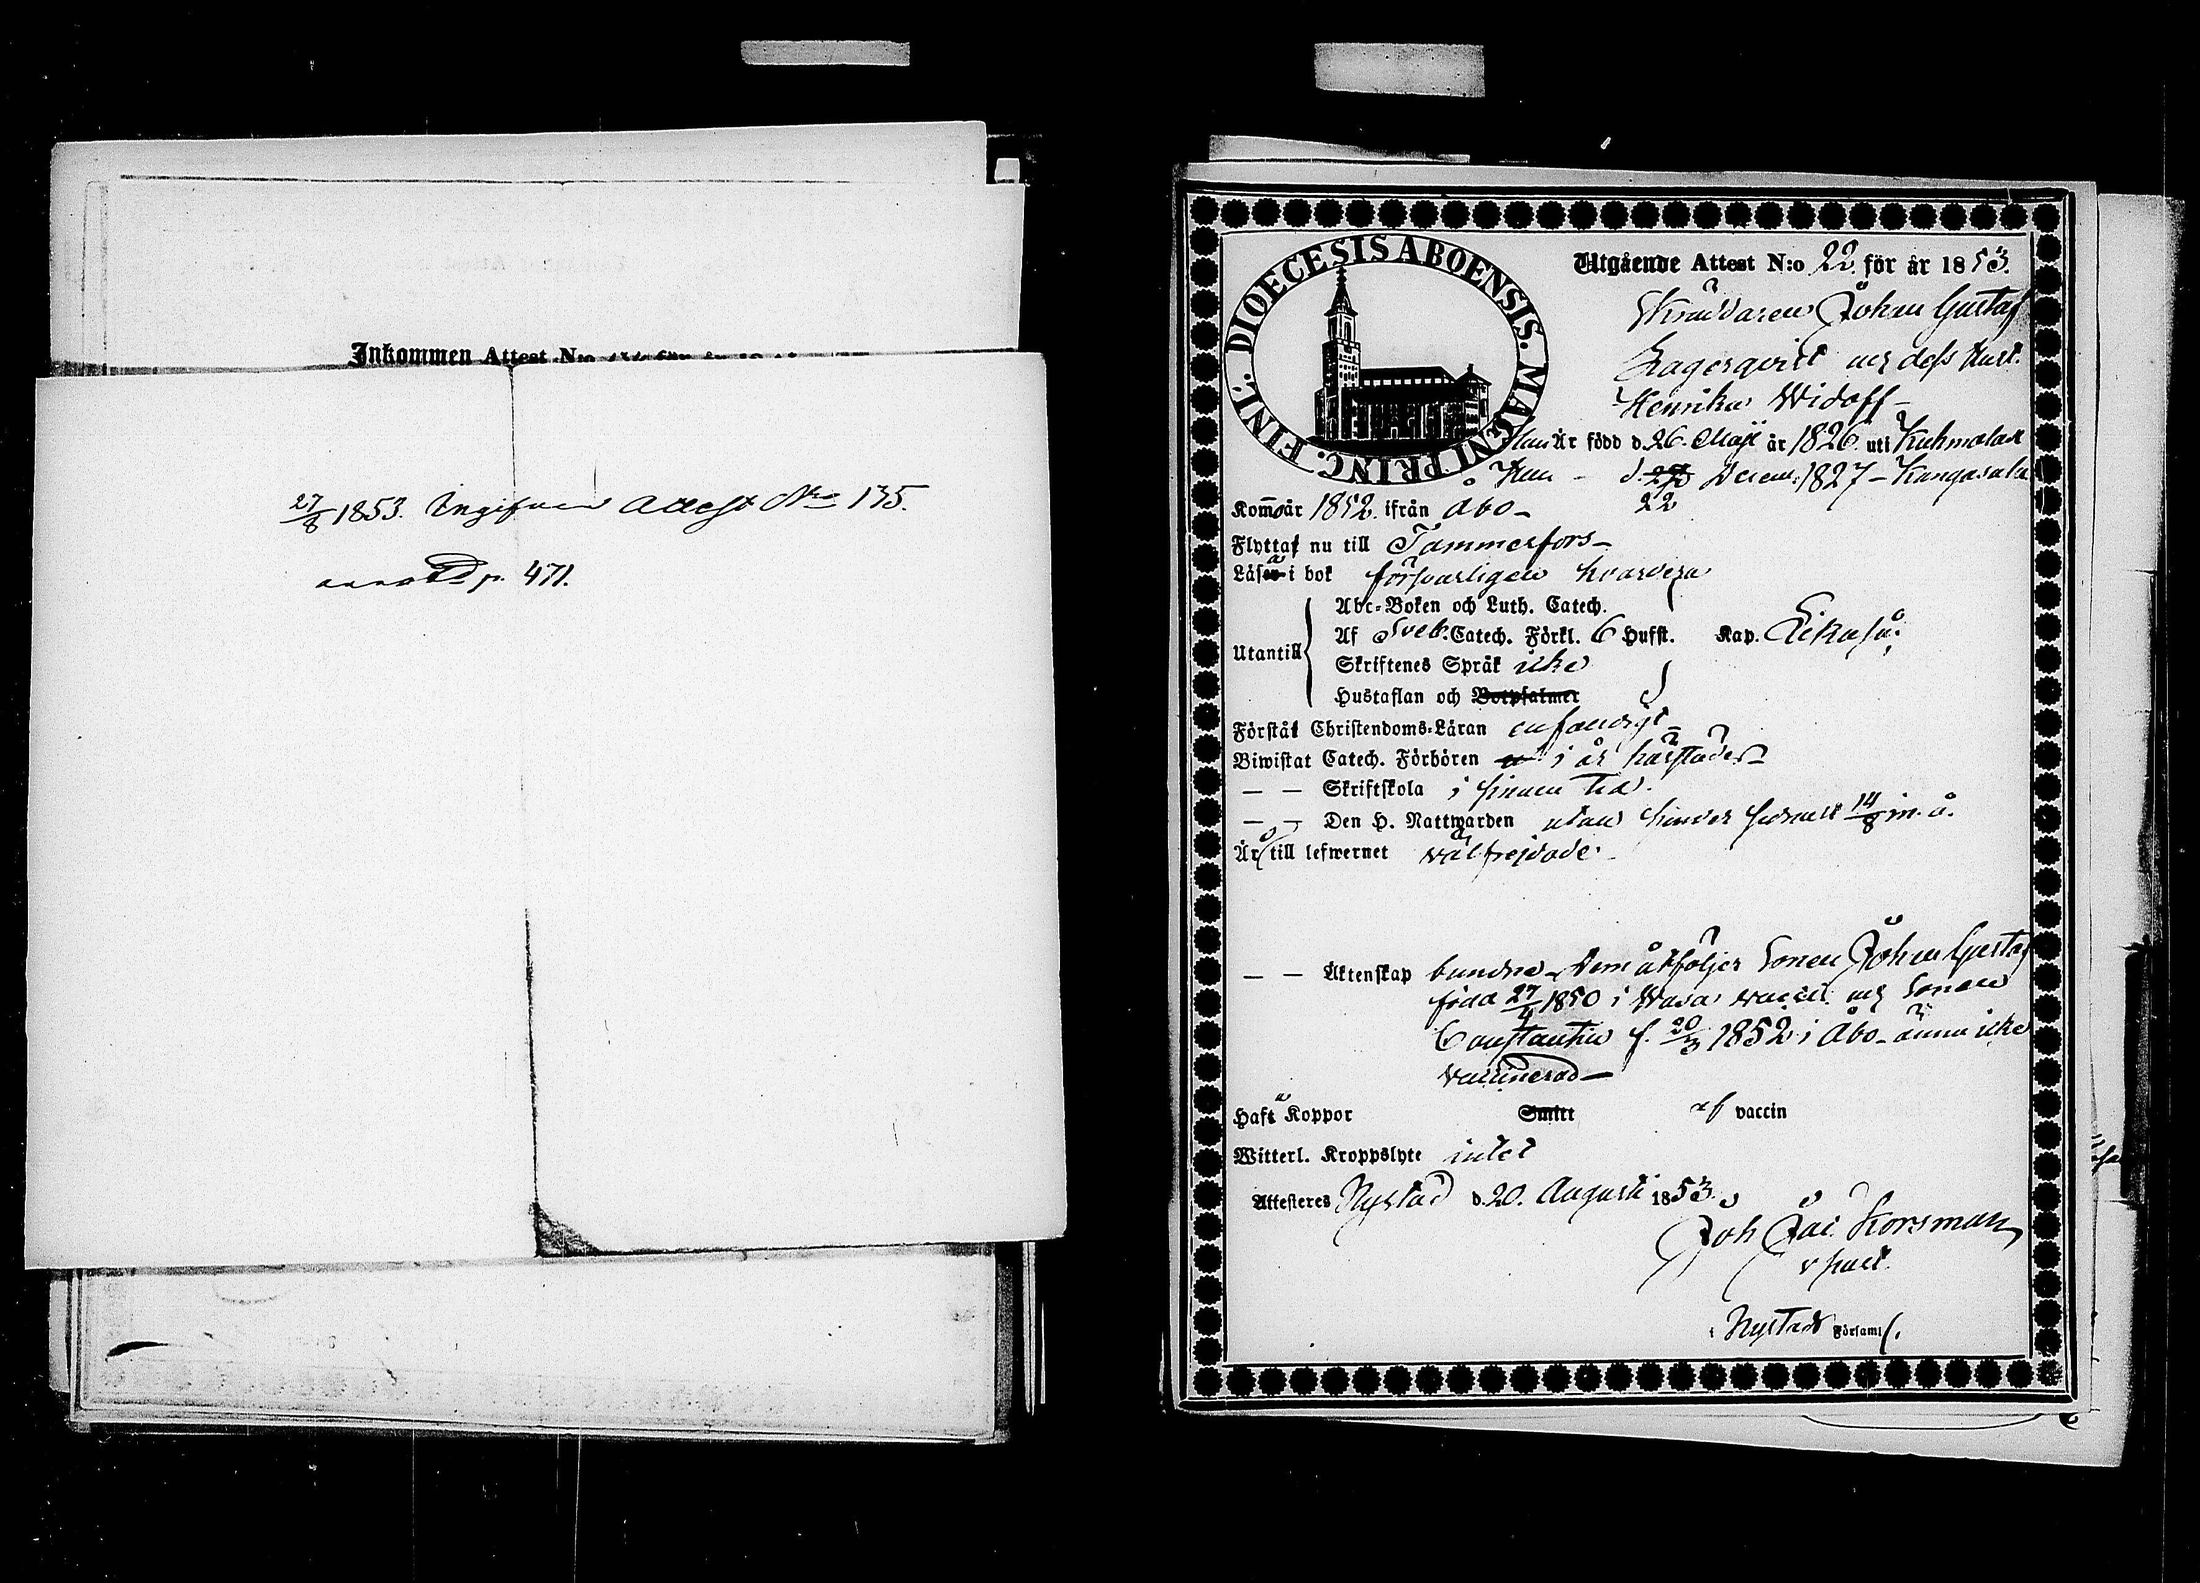 Inkommen Attest N:o
27/8 1853. Ingifven Attest No 135.
annot p. 471.
DIOECESIS ABOENSIS. MAGNI PRINC. FINL.
Utgående Attest N:o 22. för år 1853.
Skräddaren Johan Gustaf
Lagerqvist och dess Hust.
Henrika Widoff –
Han Är född d. 26. Maji år 1826. uti Kuhmalax
Hon – d. 22 Decem. 1827 – Kangasala
Komo år 1852. ifrån Abo –
Flytta nu till Tammerfors –
Läsa i bok försvarligen hvardera
Utantill
Abc-Boken och Luth. Catech.
Af Sveb. Catech. Förkl. 6 Hufst. Kap. Likaså;
Skriftenes Språk icke
Hustaflan och Botpsalmer
Förstå Christendoms-Läran enfaldigt –
Biwistat Catech. Förhören i år härstädes –
— — Skriftskola i sinom tid.
— — Den H. Nattwarden utan hinder senast 14/8 in. å.
Äro till lefwernet välfrejdade –
— — Äktenskap bundne – Dem åtföljer Sonen Johan Gustaf
född 27/4 1850 i Wasa vaccil. och Sonen
Constantin f. 20/3 1852 i Åbo – ännu icke
vaccinerad –
Haft Koppor Smitt af vaccin
Witterl. Kroppslyte intet
Attesteres Nystad d. 20. Augusti 1853.
Joh Jac. Korsman
v past.
i Nystads Församl.